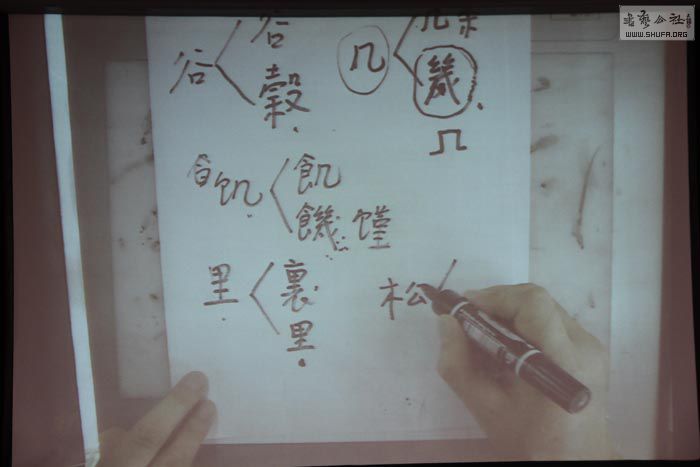 書藝公社
WWW.SHUFA.ORG
谷 谷 穀
几 几 幾
几
飢 飢 饑 饉
里 裏 里
松